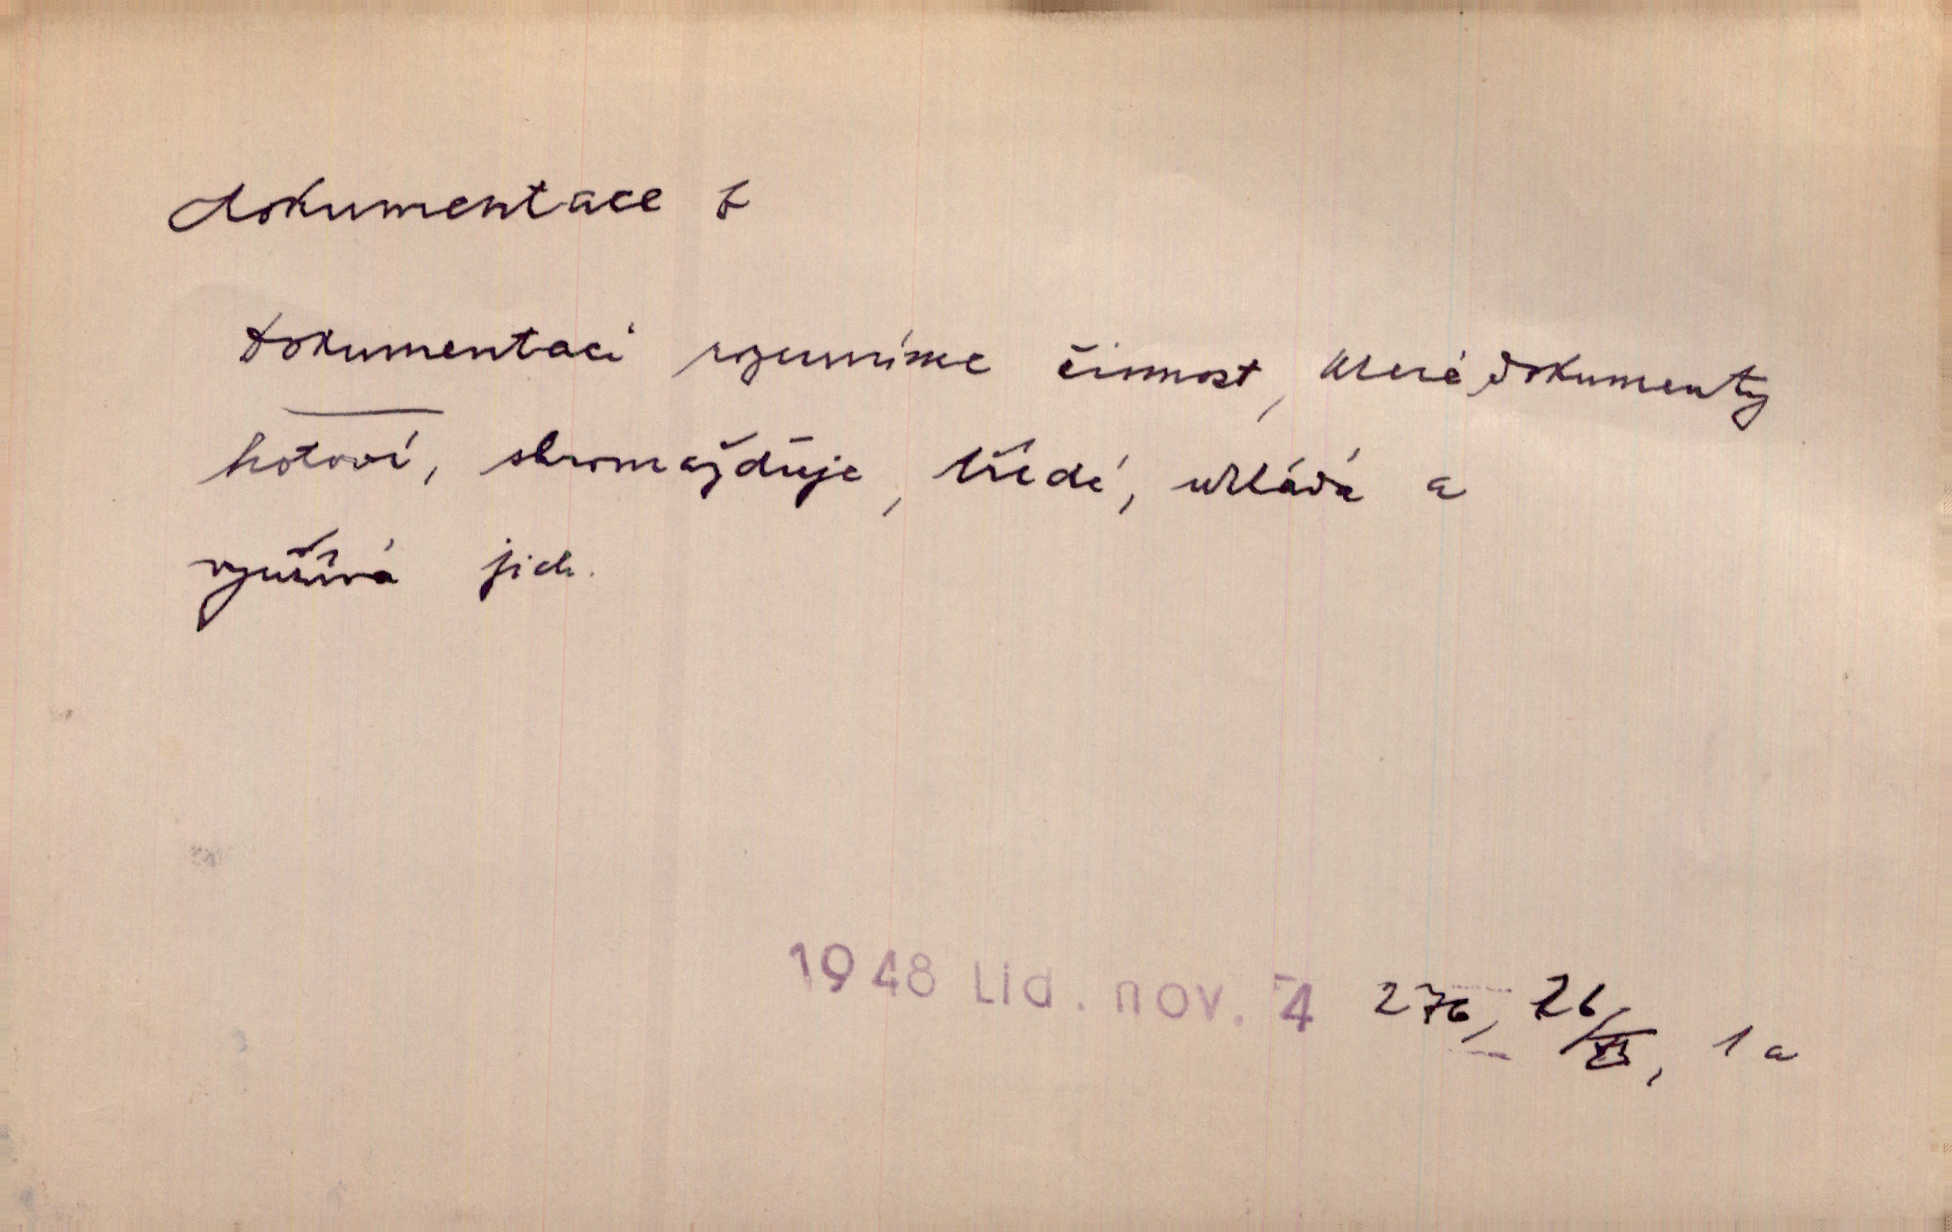 dokumentace f
dokumentací rozumíme činnost, která dokumenty
hotoví, shromažďuje, třídí, ukládá a
využívá jich.
1948 Lid. nov. 54 276, 26/XI, 1a